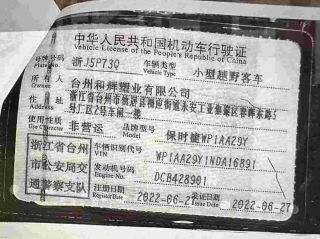 中华人民共和国机动车行驶证
Vehicle License of the People's Republic of China
号牌号码 浙J5P73Q 车辆类型 小型越野客车
Plate No. Vehicle Type
所有人 台州和辉塑业有限公司
Owner
住址 浙江省台州市仙居县南峰街道永安工业集聚区春晖东路5
号厂区2号车间一楼
使用性质 非营运 品牌型号 保时捷WP1AA29Y
Use Character Model
浙江省台州 车辆识别代号 WP1AA29Y1NDA16891
VIN
市公安局交 发动机号码 DCB428901
Engine No.
通警察支队 注册日期 2022-06-27 发证日期 2022-06-27
Register Date Issue Date